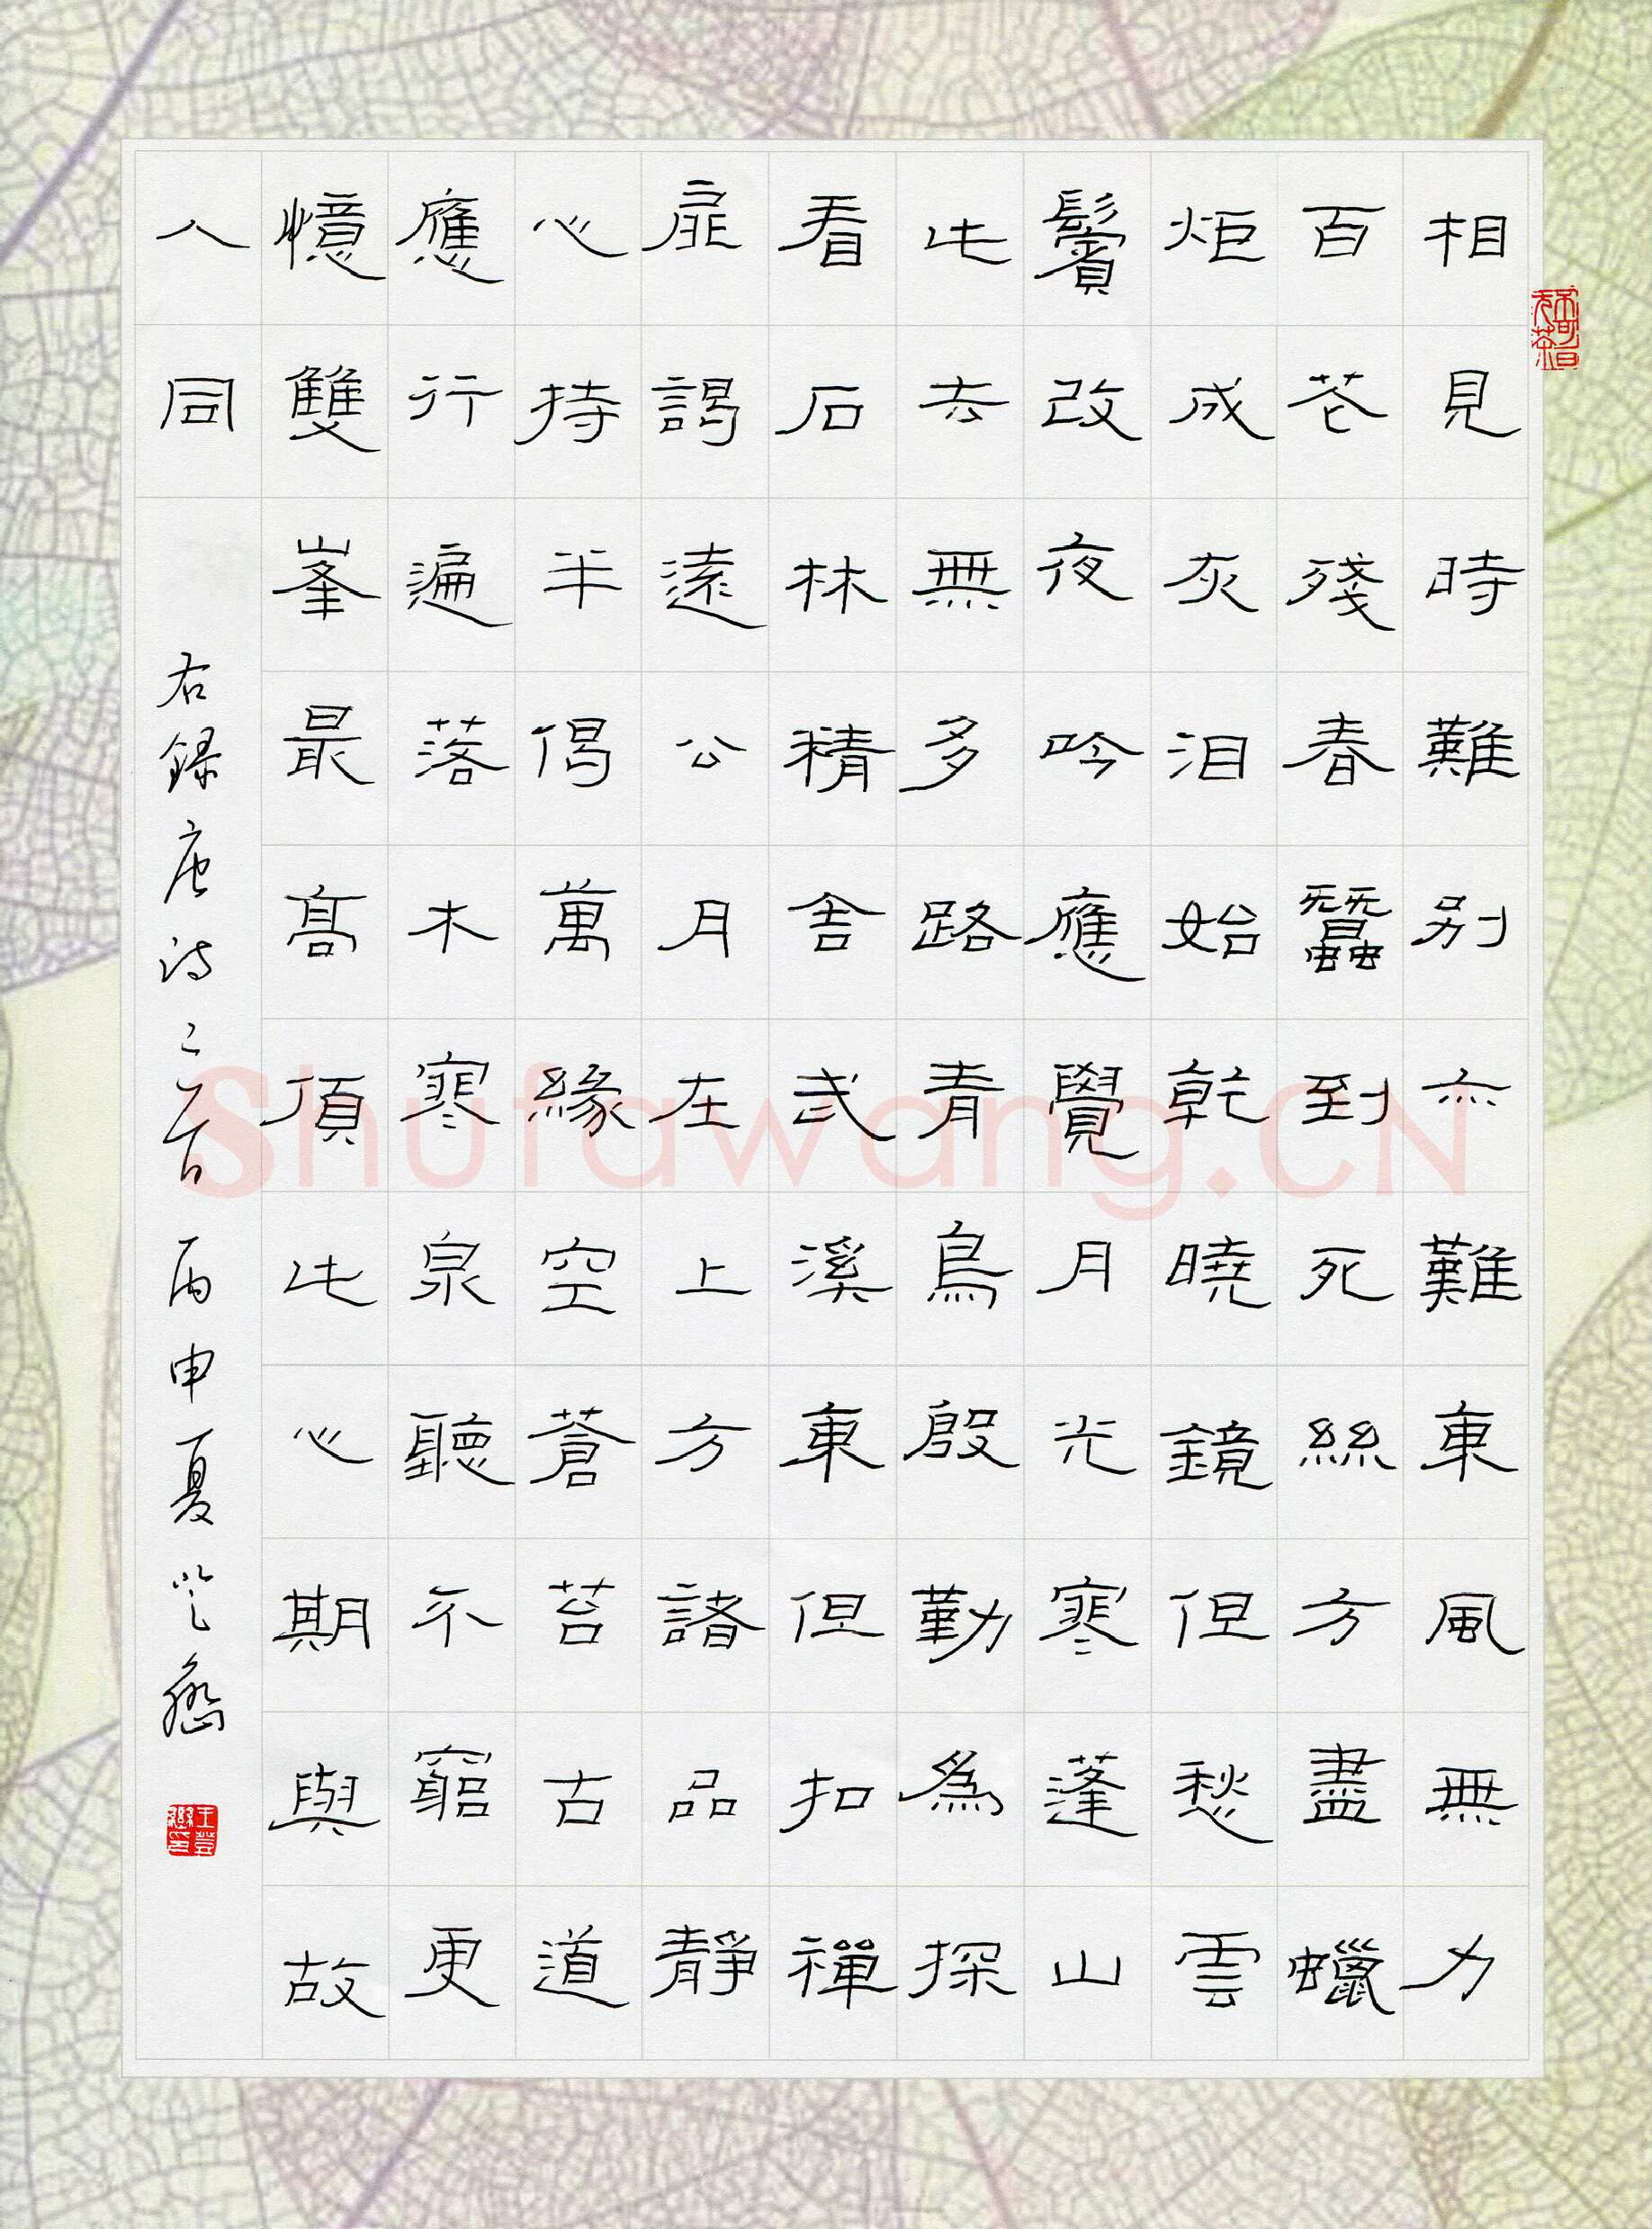 相見時難别亦難東風無力
百花殘春蠶到死絲方盡蠟
炬成灰泪始乾曉鏡但愁雲
鬢改夜吟應覺月光寒蓬山
此去無多路青鳥殷勤為探
看石林精舍武溪東但扣禪
扉謁遠公月在上方諸品靜
心持半偈萬緣空蒼苔古道
應行遍落木寒泉聽不窮更
憶雙峯最髙頂此心期與故
人同
右録唐詩二首丙申夏
Shufawang.CN